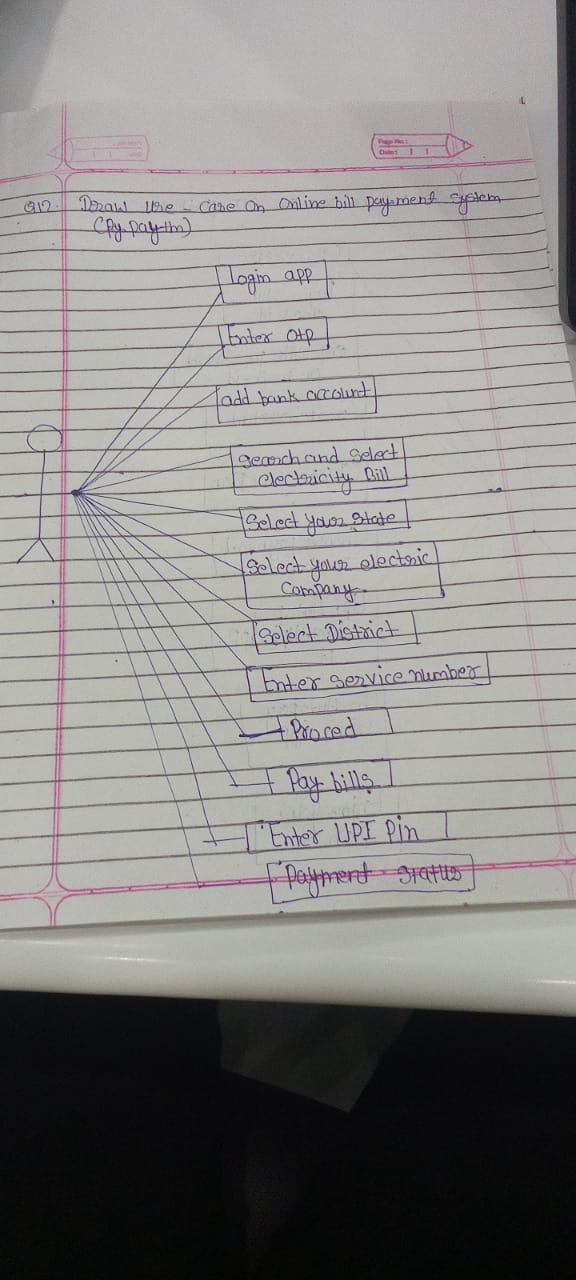 Page No.:
Date:
Q12. Draw use - case on online bill payment system
(Py. paytm)
login app
Enter otp
add bank account
Search and Select
electricity Bill
Select your State
Select your electric
Company.
Select District
Enter service number
Proced
Pay bills
Enter UPI Pin
Payment status